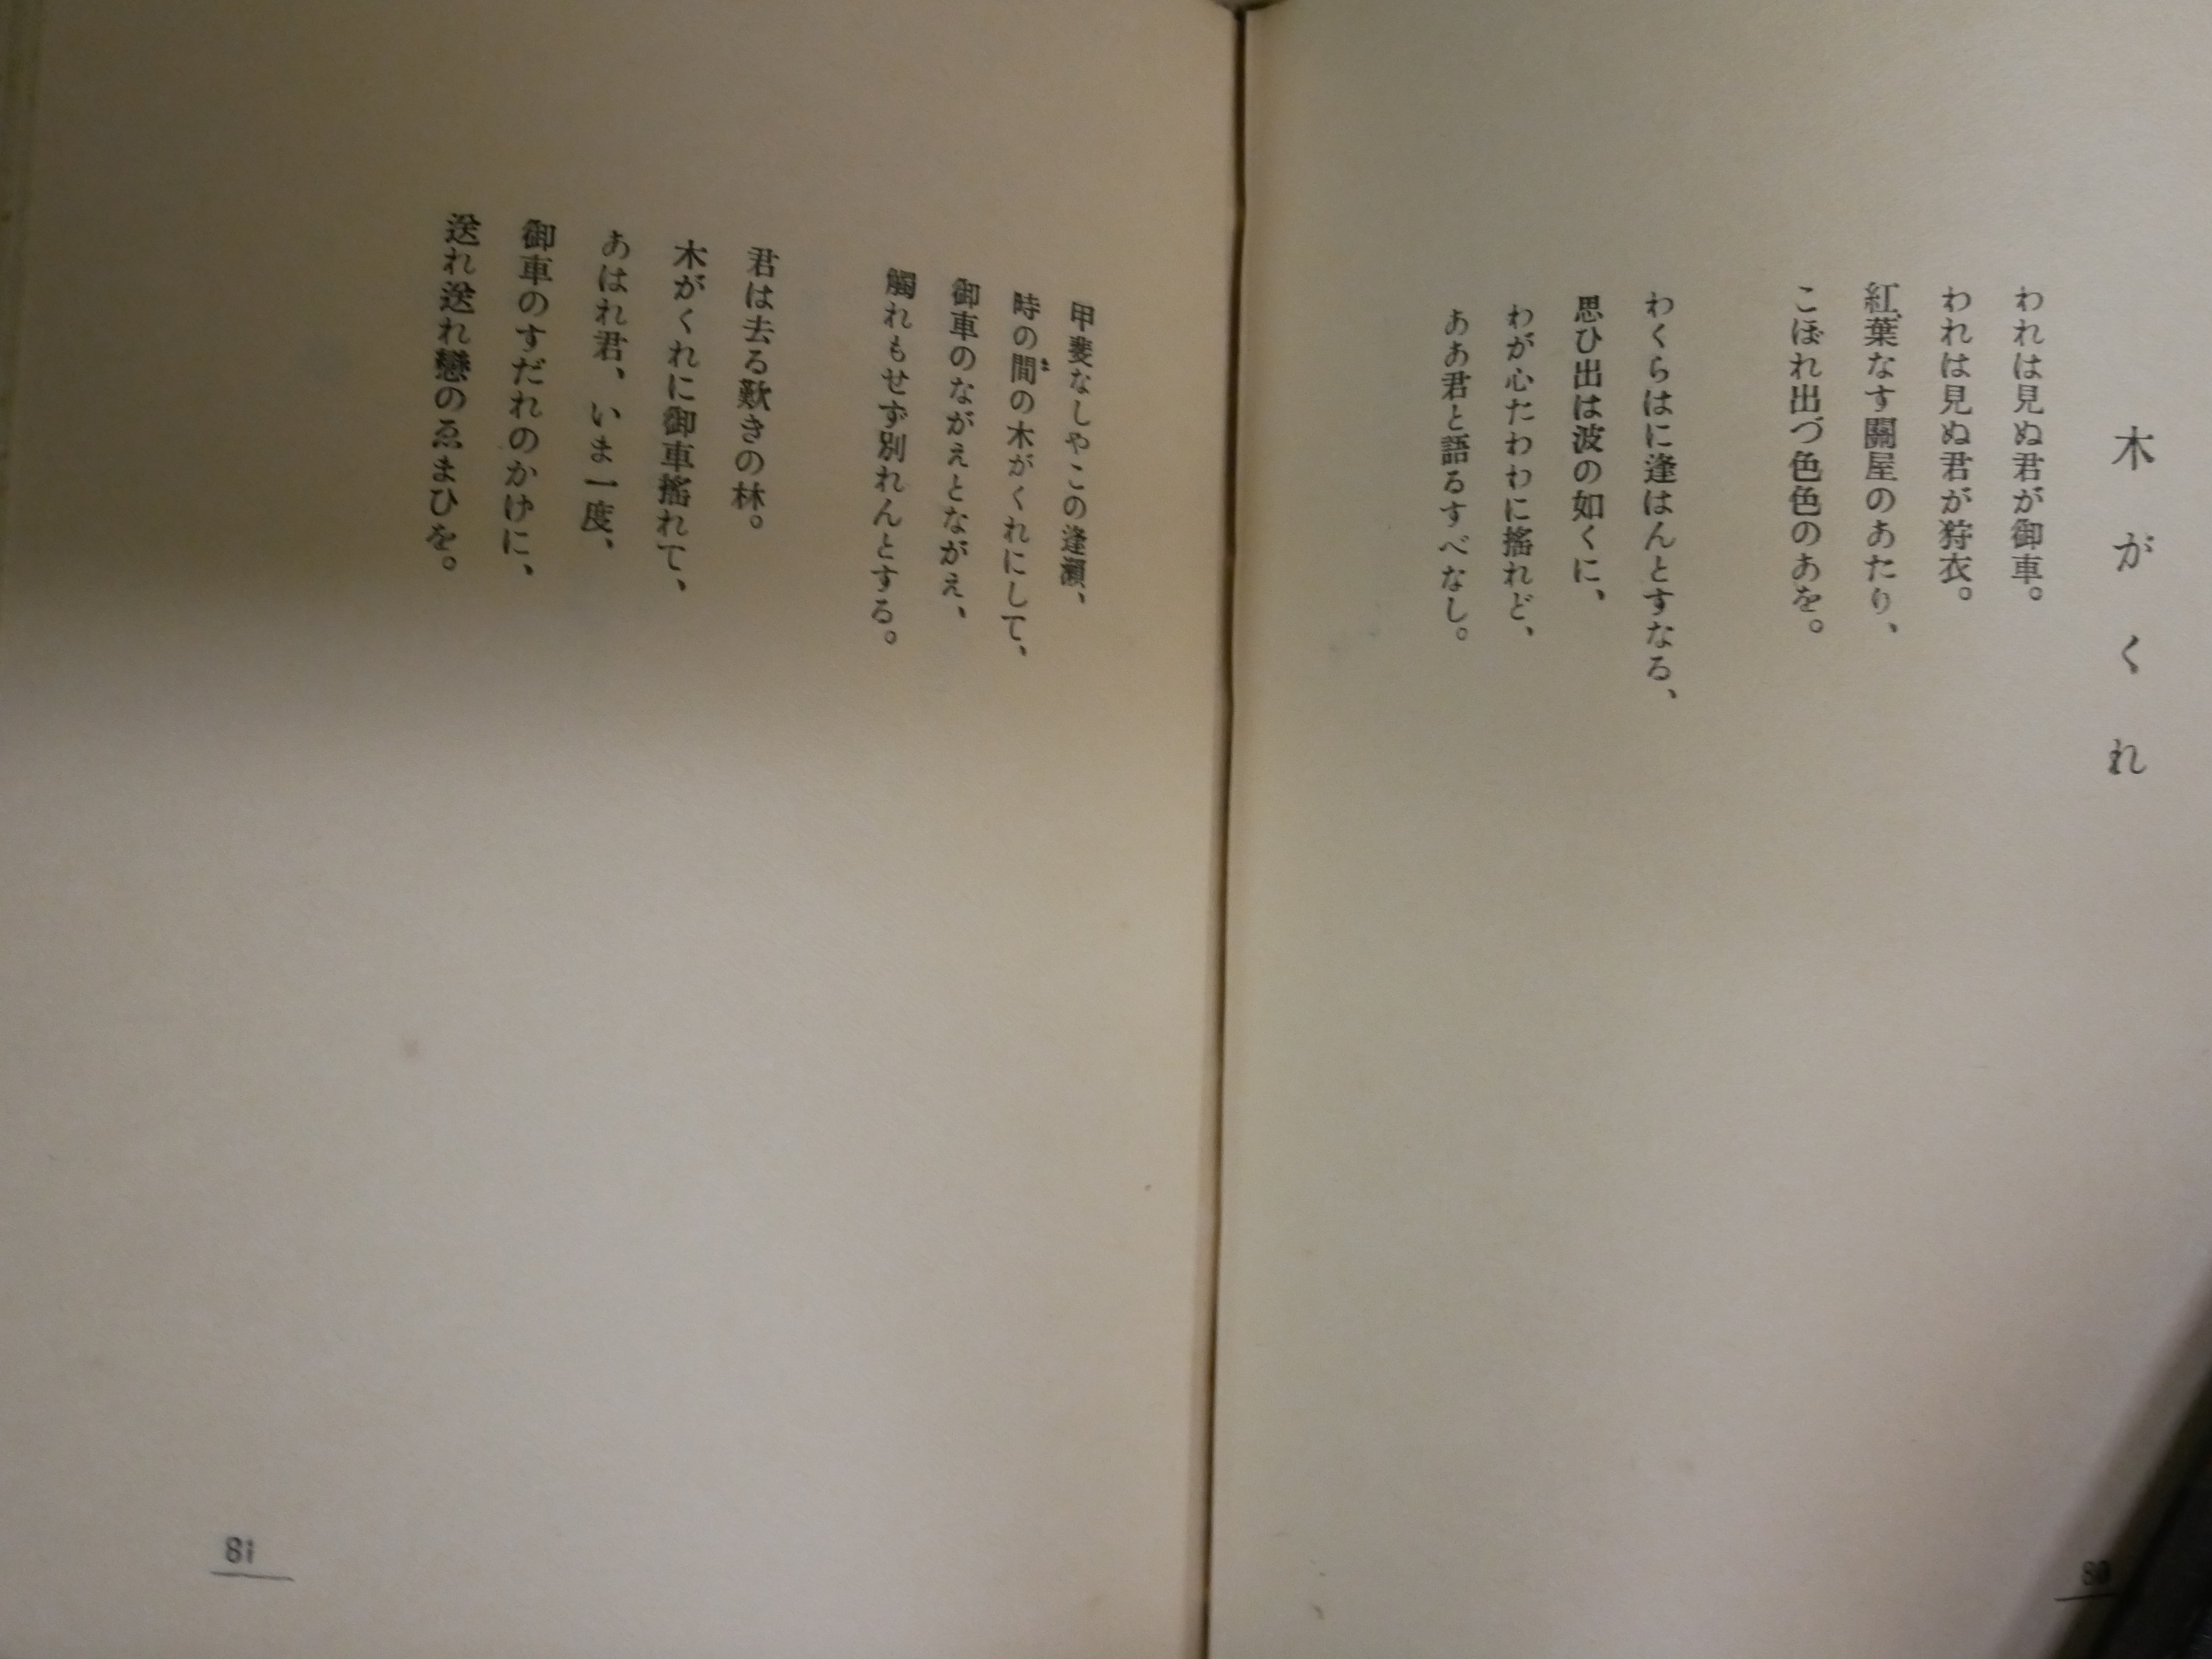 木がくれ
われは見ぬ君が御車。
われは見ぬ君が狩衣。
紅葉なす關屋のあたり、
こぼれ出づ色色のあを。
わくらはに逢はんとすなる、
思ひ出は波の如くに、
わが心たわわに搖れど、
ああ君と語るすべなし。
80
甲斐なしやこの逢瀬、
時の間の木がくれにして、
ま
御車のながえとながえ、
觸れもせず別れんとする。
君は去る歎きの林。
木がくれに御車搖れて、
あはれ君、いま一度、
御車のすだれのかげに、
送れ送れ戀のゑまひを。
81